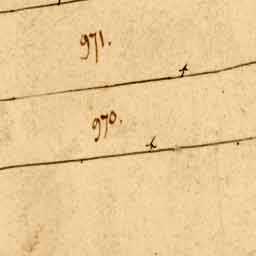 971.
970.